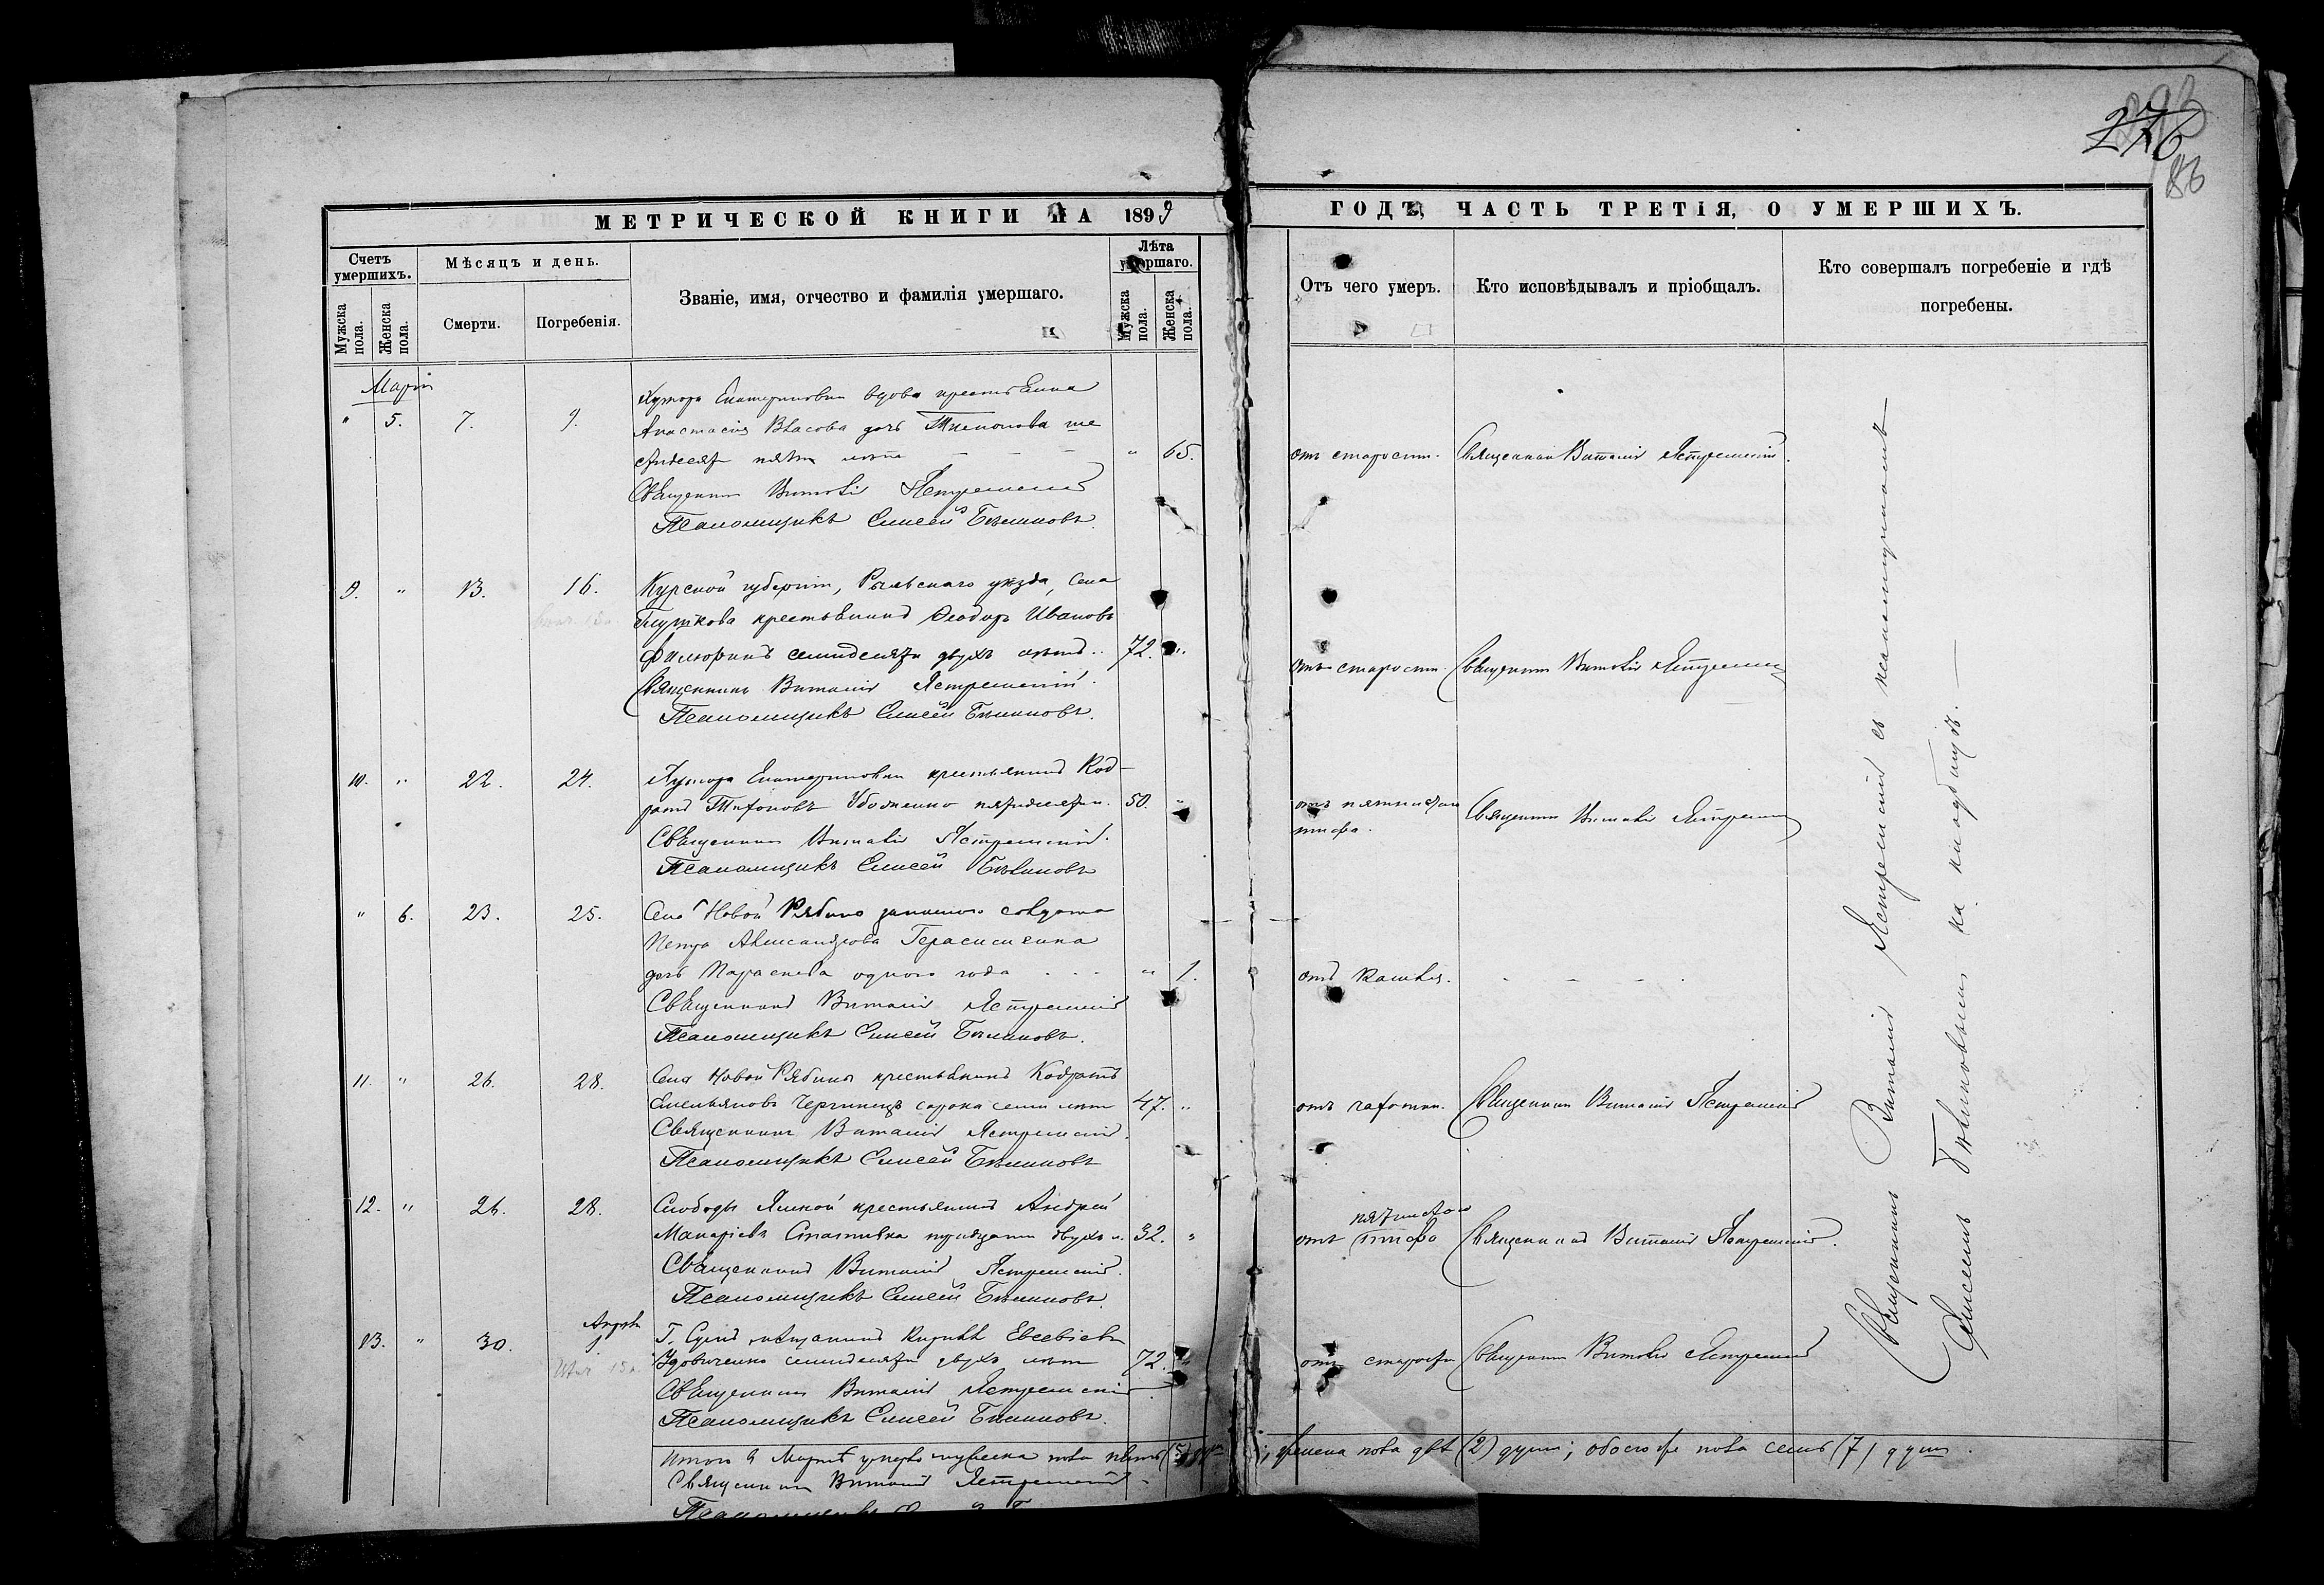 276
86
МЕТРИЧЕСКОЙ КНИГИ НА 1899
ГОДЪ, ЧАСТЬ ТРЕТІЯ, О УМЕРШИХЪ.
Счетъ умершихъ.
Мужска пола.
Женска пола.
Мѣсяцъ и день.
Смерти.
Погребенія.
Званіе, имя, отчество и фамилія умершаго.
Лѣта умершаго.
Мужска пола.
Женска пола.
Отъ чего умеръ.
Кто исповѣдывалъ и пріобщалъ.
Кто совершалъ погребеніе и гдѣ
погребены.
Мартъ
" 5. 7. 9.
Хутора вдова
Анастасія Власова дочь ше
стидесяти пяти лѣтъ " 65.
отъ старости. Священникъ Виталій Ястремскій.
Священникъ Виталій Ястремскій
Псаломщикъ Елисей Бѣликовъ.
9. " 13. 16. Курской губерніи, Рыльскаго уѣзда, села
крестьянинъ Ѳеодоръ Ивановъ
семидесяти двухъ лѣтъ. 72. "
отъ старости. Священникъ Виталій Ястремскій
Священникъ Виталій Ястремскій.
Псаломщикъ Елисей Бѣликовъ.
10. " 22. 24. Хутора крестьянинъ Код-
ратъ пятидесяти. 50. "
отъ пятнистаго
тифа.
Священникъ Виталій Ястремскій
Священникъ Виталій Ястремскій.
Псаломщикъ Елисей Бѣликовъ
" 6. 23. 25. Села Новой Рябины запаснаго солдата
Петра Александрова Герасименка
дочь Параскева одного года " 1.
отъ кашля.
Священникъ Виталій Ястремскій
Псаломщикъ Елисей Бѣликовъ.
11. " 26. 28. Села Новой Рябины крестьянинъ Кодратъ
Емельяновъ сорока семи лѣтъ 47. "
отъ чахотки. Священникъ Виталій Ястремскій
Священникъ Виталій Ястремскій.
Псаломщикъ Елисей Бѣликовъ
12. " 26. 28. Слободы крестьянинъ Андрей
Макаріевъ тридцати двухъ л. 32. "
отъ пятнистаго тифа Священникъ Виталій Ястремскій.
Священникъ Виталій Ястремскій.
Псаломщикъ Елисей Бѣликовъ.
Апрѣля
13. " 30. 1 Г. Сумъ мѣщанинъ Кириллъ Евсевіевъ
Удовиченко семидесяти двухъ лѣтъ 72. "
отъ старости Священникъ Виталій Ястремскій
Священникъ Виталій Ястремскій
Псаломщикъ Елисей Бѣликовъ.
Священникъ Виталій Ястремскій съ псаломщикомъ
Елисеемъ Бѣликовымъ на кладбищѣ.
Итого въ Мартѣ умерло мужеска пола пять (5) душъ; женска пола двѣ (2) души; обоего же пола семь (7) душъ.
Священникъ Виталій Ястремскій
Псаломщикъ